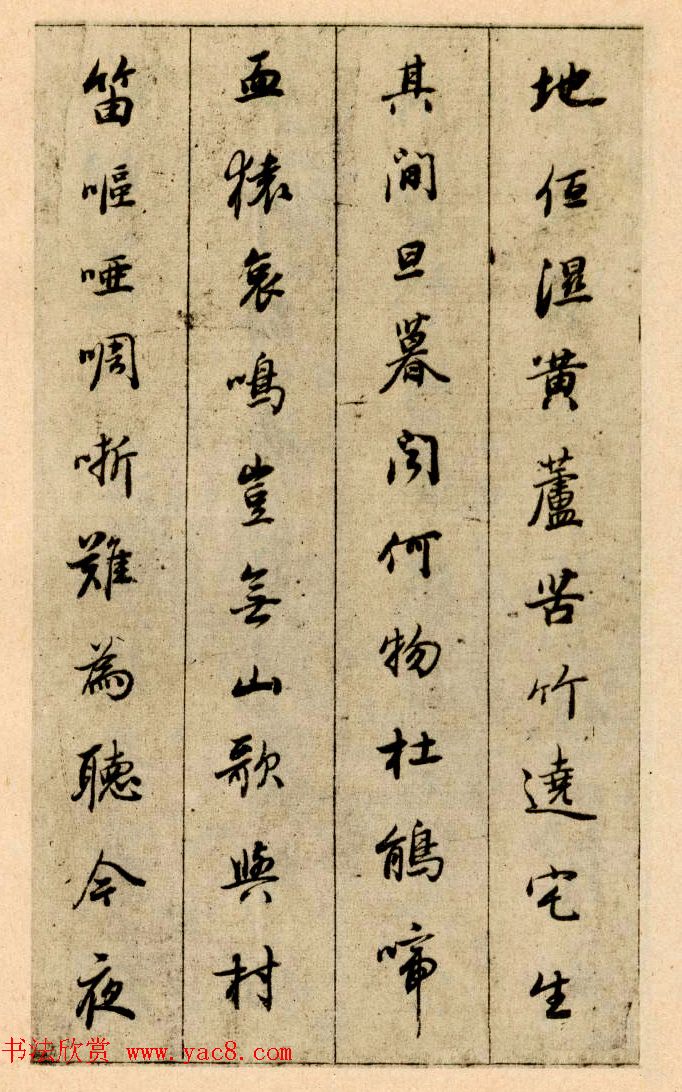 地伍湿黄蘆苦竹遶宅生
其間旦暮聞何物杜鵑啼
血猿哀鳴豈無山歌與村
笛嘔啞啁哳難為聽今夜
书法欣赏 www.yac8.com